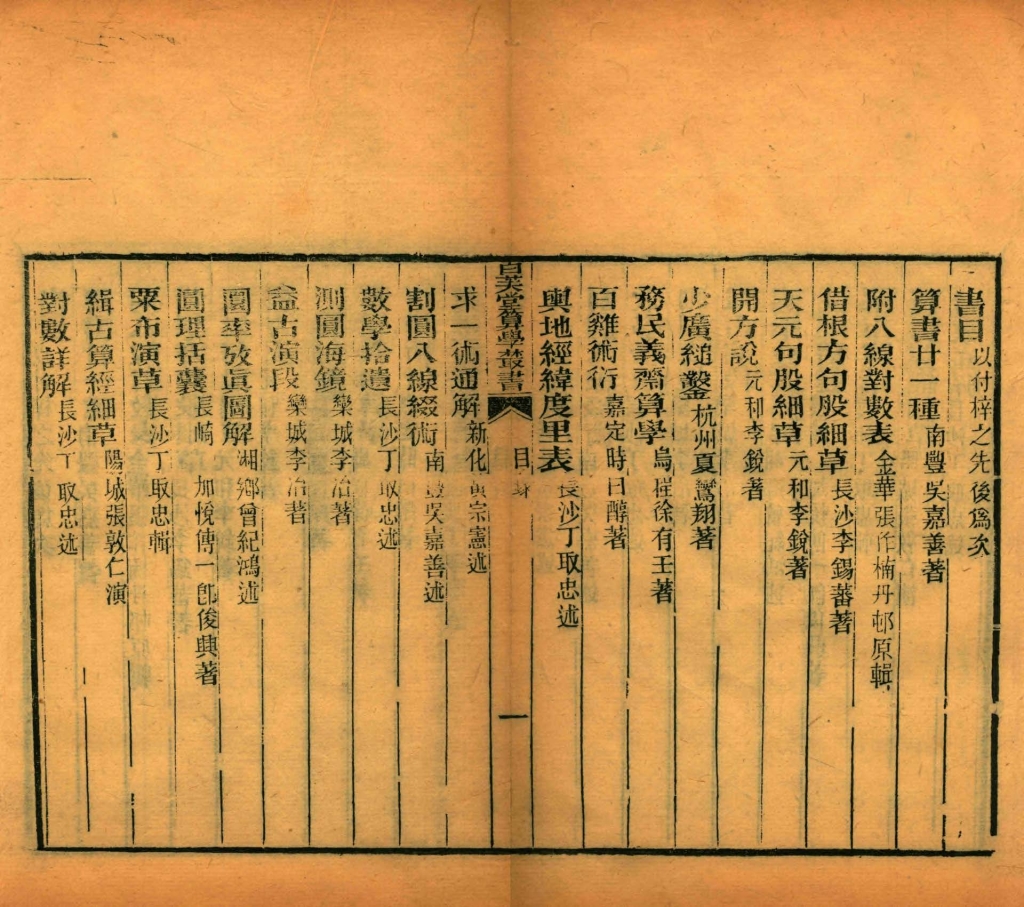 書目以付梓之先後爲次
算書廿一種南豐吳嘉善著
附八線對數表金華張作楠丹邨原輯
借根方句股細草長沙李錫蕃著
天元句股細草元和李銳著
開方說元和李銳著
少廣縋鑿杭州夏鸞翔著
務民義齋算學烏程徐有壬著
百雞術衍嘉定時曰醇著
輿地經緯度里表長沙丁取忠述
白芙堂算學叢書 目錄 一
求一術通解新化黃宗憲述
割圓八線綴術南豐吳嘉善述
數學拾遺長沙丁取忠述
測圓海鏡欒城李冶著
益古演段欒城李冶著
圜率攷眞圖解湘鄉曾紀鴻述
圓理括囊長崎 加悅傳一郎俊興著
粟布演草長沙丁取忠輯
緝古算經細草陽城張敦仁演
對數詳解長沙丁取忠述